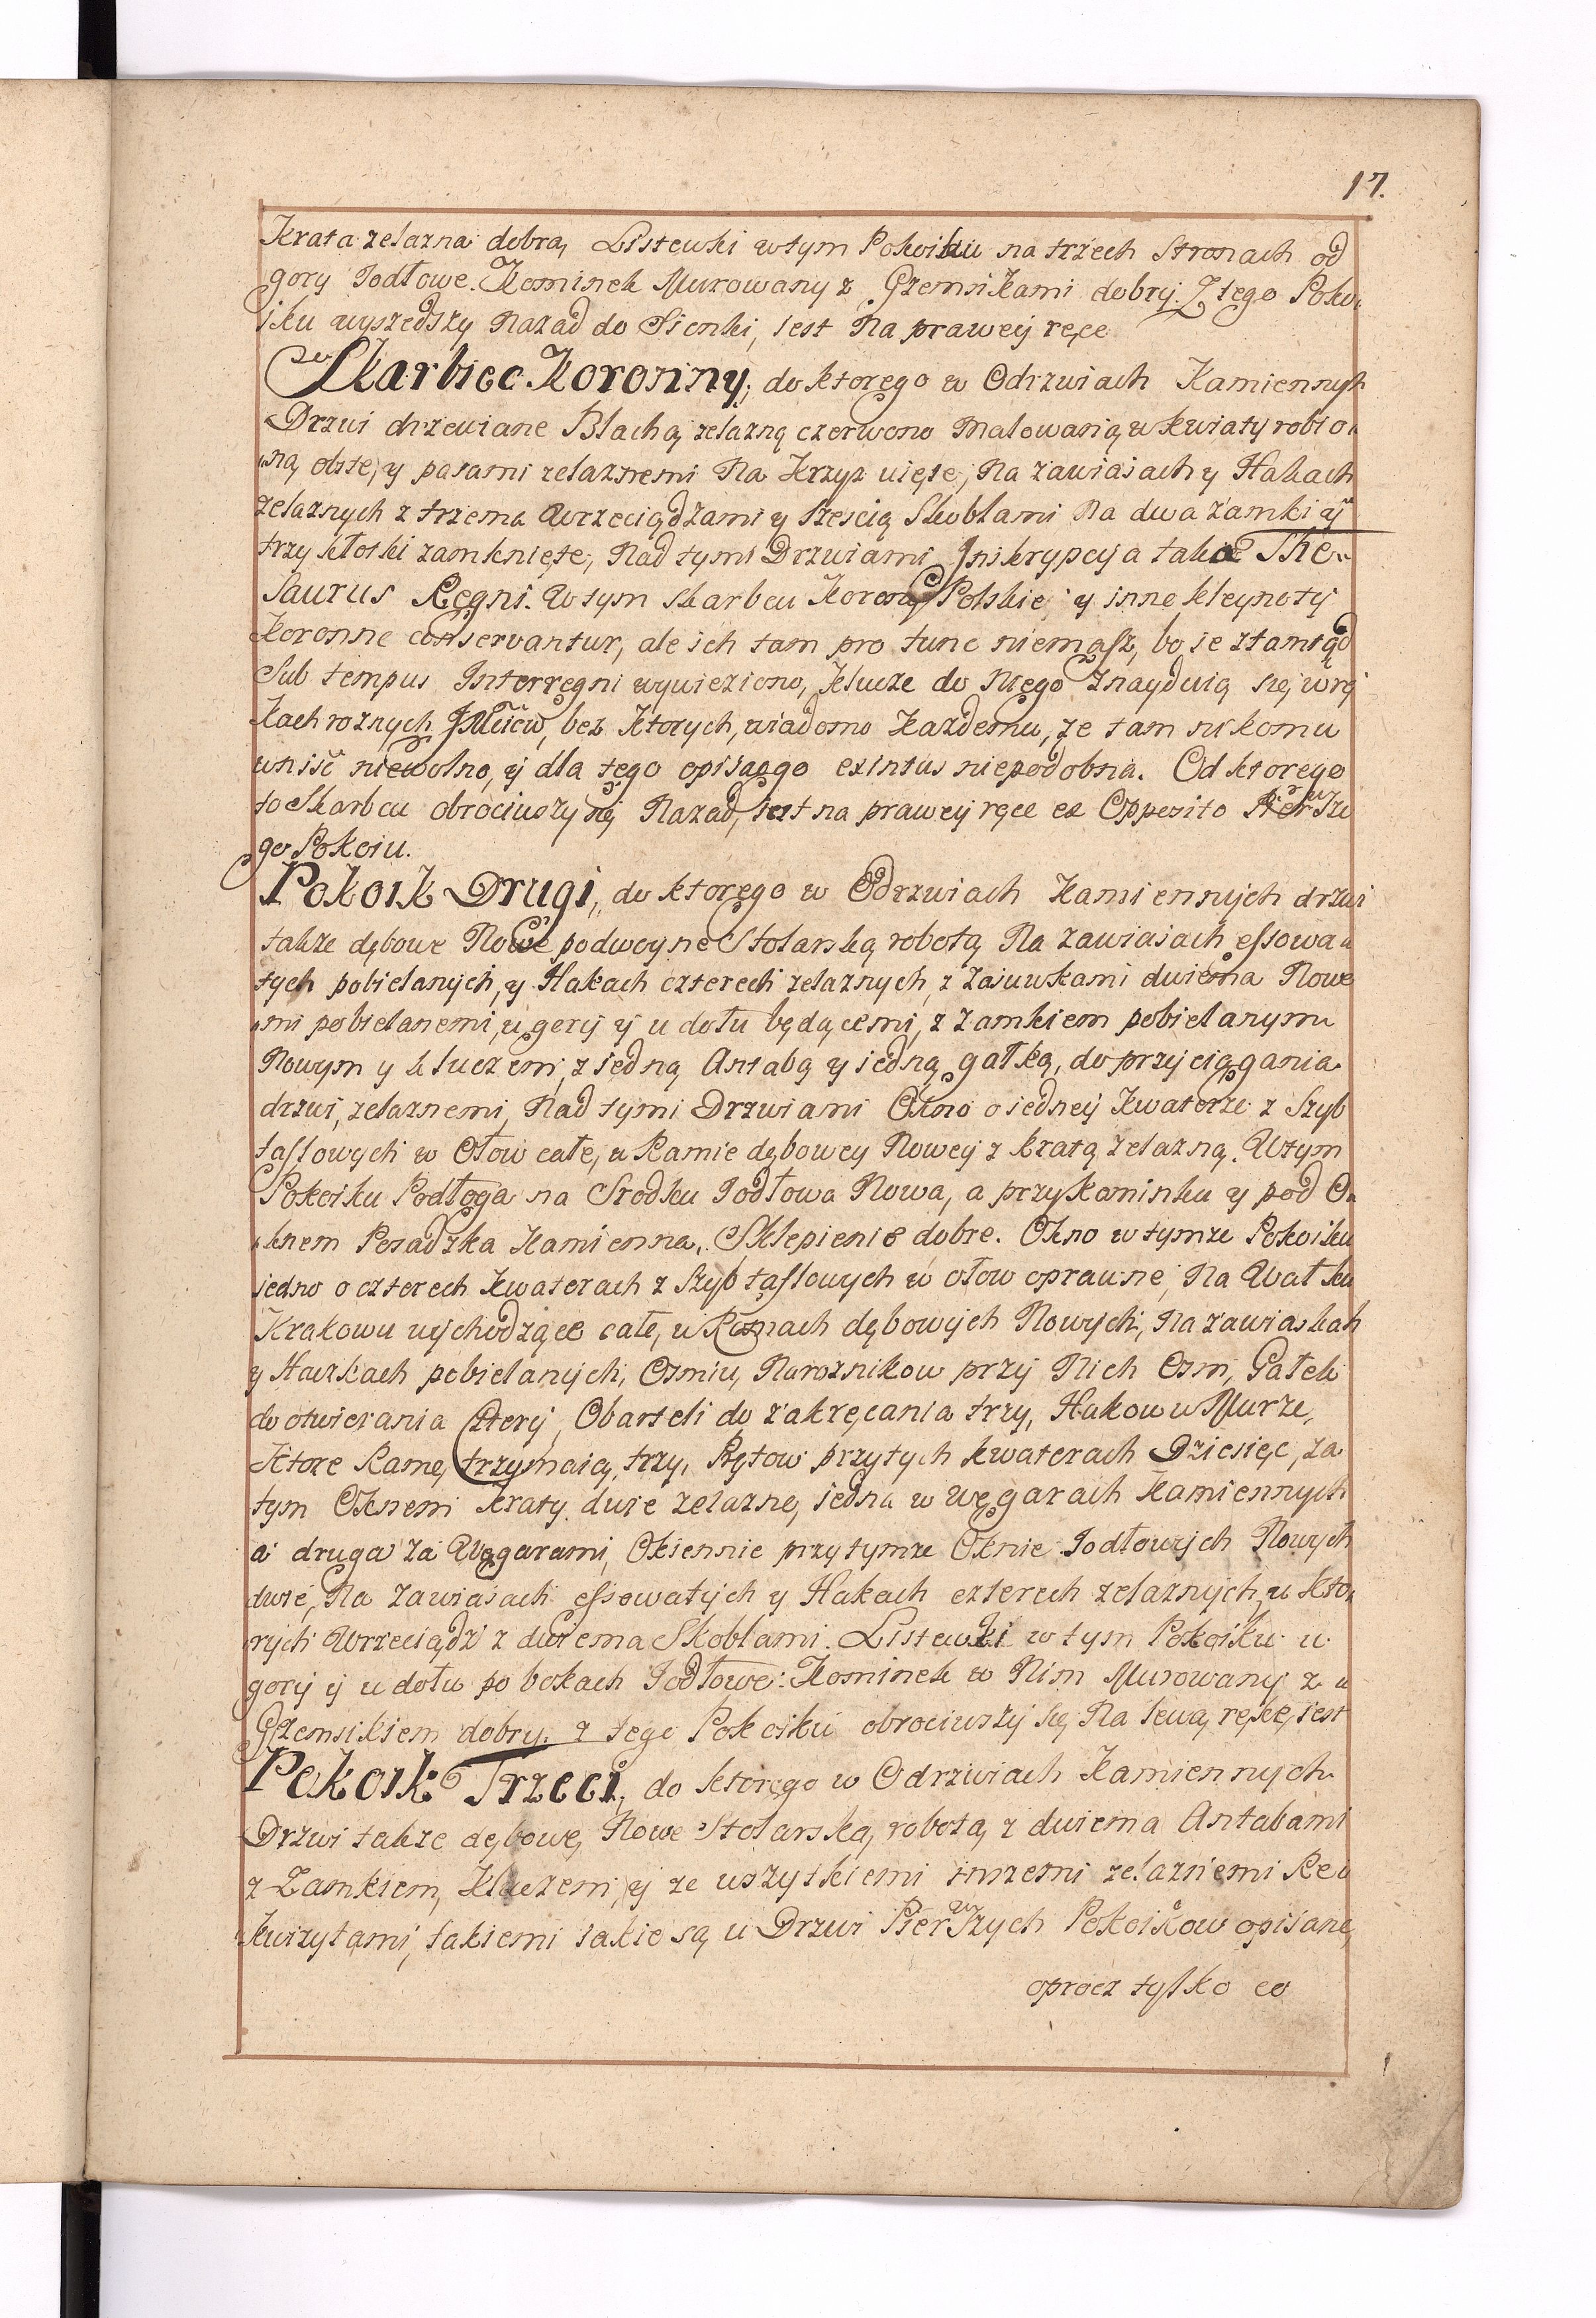 17.
Krata zelazna dobra, Listewki wtym Pokoiku na trzech Stronach od
gory Jodłowe. Kominek Murowany z Gzemsikami dobry. Z tego Poko-
iku wyszedszy Nazad do Sionki, iest Na prawey ręce
Skarbiec Koronny, do ktorego w Odrzwiach Kamiennych
Drzwi drzewiane Blachą zelazną czerwono Malowaną w kwiaty robio-
ną obite, y pasami zelaznemi Na Krzyz uięte, Na zawiasach y Hakach
zelaznych z trzema Wrzeciądzami y szescią Skoblami Na dwa zamki y
trzy kłotki zamknięte, Nad tymi Drzwiami Jnskrypcyia taka The-
saurus Regni. Wtym skarbcu Korony Polskie y inne kleynoty
Koronne conservantur, ale ich tam pro tunc niemasz, bo ie ztamtąd
Sub tempus Interregni wywieziono, Klucze do Niego Znayduią się w rę
kach roznych, bez Ktorych, wiadomo Kazdemu, ze tam nikomu
wniść niewolno, y dla tego opisac go exintus niepodobna. Od ktorego
to Skarbcu obrociwszy się Nazad, iest na prawey ręce ex Opposito Pierwsze
go Pokoiu.
Pokoik Drugi, do ktorego w Odrzwiach Kamiennych drzwi
takze dębowe Nowe podwoyne Stolarską robotą Na zawiasach essowa-
tych pobielanych, y Hakach czterech zelaznych, z Zasuwkami dwiema Nowe
mi pobielanemi, u gory y u dołu będącemi, z Zamkiem pobielanym
Nowym y kluczem, z iedną Antabą y iedną gałką, do przyciągania
drzwi, zelaznemi, Nad tymi Drzwiami Okno o iedney Kwaterze z Szyb
taflowych w Ołow całe, w Ramie dębowey Nowey z kratą zelazną. Wtym
Pokoiku Podłoga na Srodku Jodłowa Nowa, a przy Kominku y pod O-
knem Posadzka Kamienna. Sklepienie dobre. Okno w tymze Pokoiku
iedno o czterech Kwaterach z Szyb taflowych w ołow oprawne, Na Wał ku
Krakowu wychodzące całe, w Ramach dębowych Nowych, Na zawiaskah
y Haczkach pobielanych, Osmiu, Naroznikow przy Nich Osm, Gałek
do otwierania cztery, Obarteli do zakręcania trzy, Hakow w Murze,
Ktore Ramę trzymaią, trzy, Prętow przytych kwaterach Dziesięc, za
tym Oknem kraty dwie zelazne, iedna w węgarach Kamiennych
a druga za Węgarami, Okiennic przy tymze Oknie Jodłowych Nowych
dwie, Na Zawiasach essowatych y Hakach czterech zelaznych, u kto-
rych Wrzeciądz z dwiema Skoblami. Listewki w tym Pokoiku u
gory y u dołu po bokach Jodłowe: Kominek w Nim Murowany z
Gzemsikiem dobry. z tego Pokoiku obrociwszy się Na lewą rękę, iest
Pokoik Trzeci, do ktorego w Odrzwiach Kamiennych
Drzwi takze dębowe, Nowe Stolarską robotą, z dwiema Antabami
z Zamkiem, Kluczem, y ze wszytkiemi inszemi zelaznemi Re
kwizytami, takiemi iakie są u Drzwi Pierwszych Pokoikow opisane,
oprocz tylko co